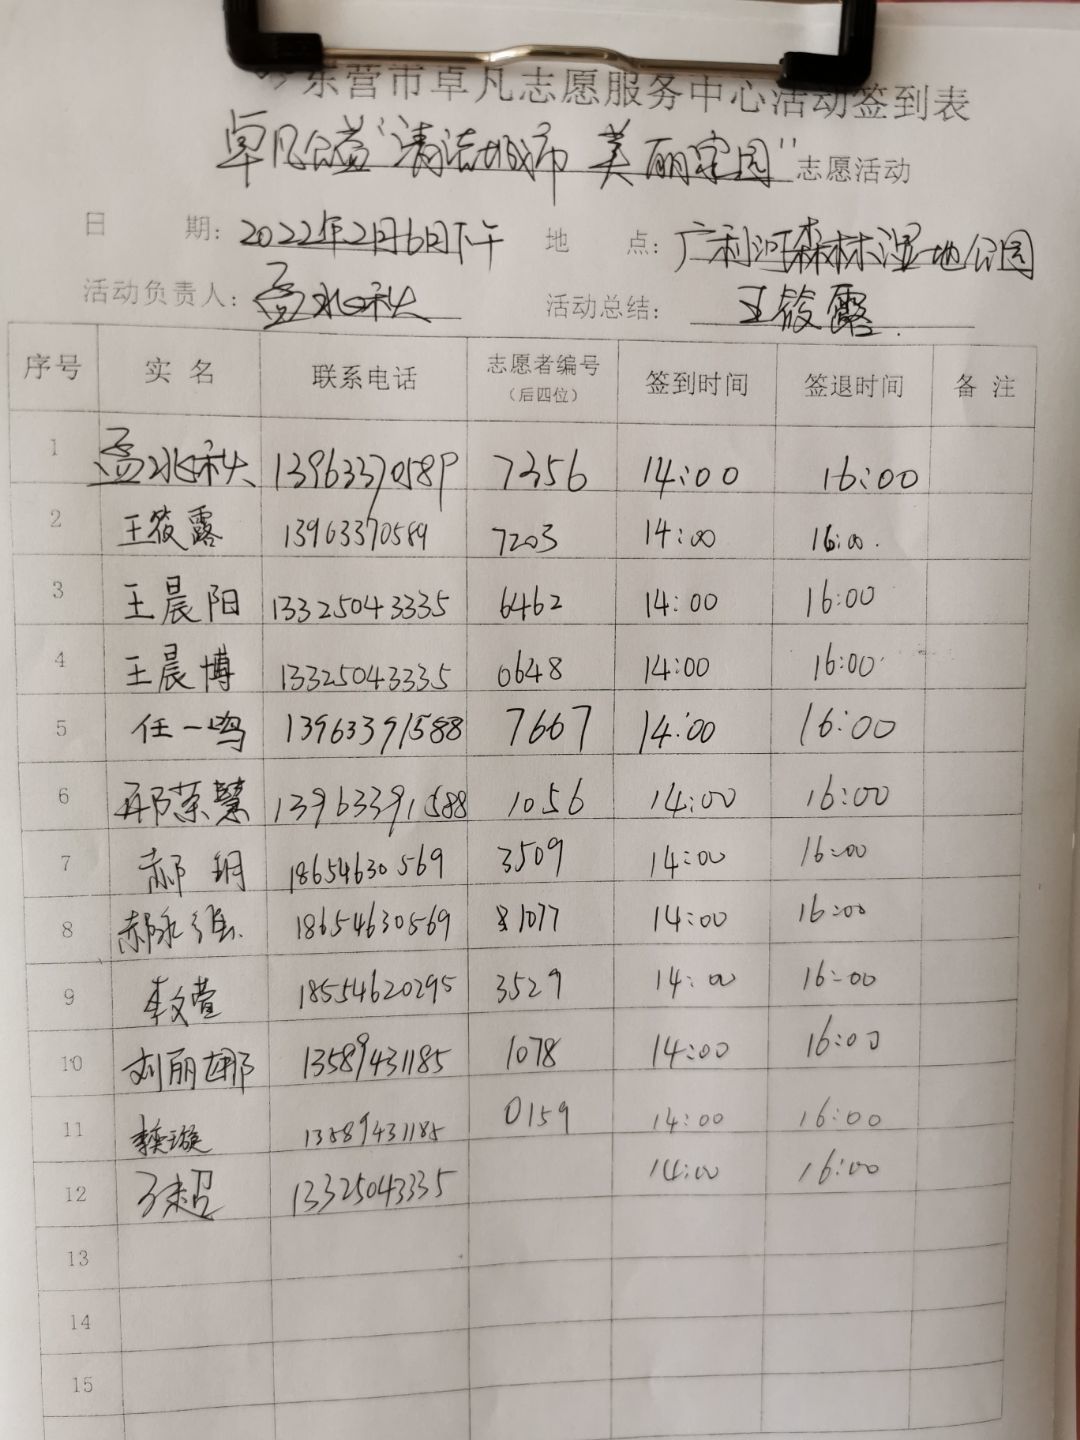 东营市卓凡志愿服务中心活动签到表
卓凡公益“清洁城市 美丽家园”志愿活动
日 期: 2022年2月6日下午 地 点: 广利河森林湿地公园
活动负责人: 孟兆秋 活动总结: 王筱露
序号 实 名 联系电话 志愿者编号 (后四位) 签到时间 签退时间 备 注
1 孟兆秋 13963370589 7356 14:00 16:00
2 王筱露 13963370589 7203 14:00 16:00.
3 王晨阳 13325043335 6462 14:00 16:00
4 王晨博 13325043335 0648 14:00 16:00
5 任一鸣 13963391588 7667 14:00 16:00
6 邴荣慧 13963391588 1056 14:00 16:00
7 郝玥 18654630569 3509 14:00 16:00
8 郝永强 18654630569 1077 14:00 16:00
9 李文萱 18554620295 3529 14:00 16:00
10 刘丽娜 13589431185 1078 14:00 16:00
11 璇 13589431185 0159 14:00 16:00
12 超 13325043335 14:00 16:00
13
14
15